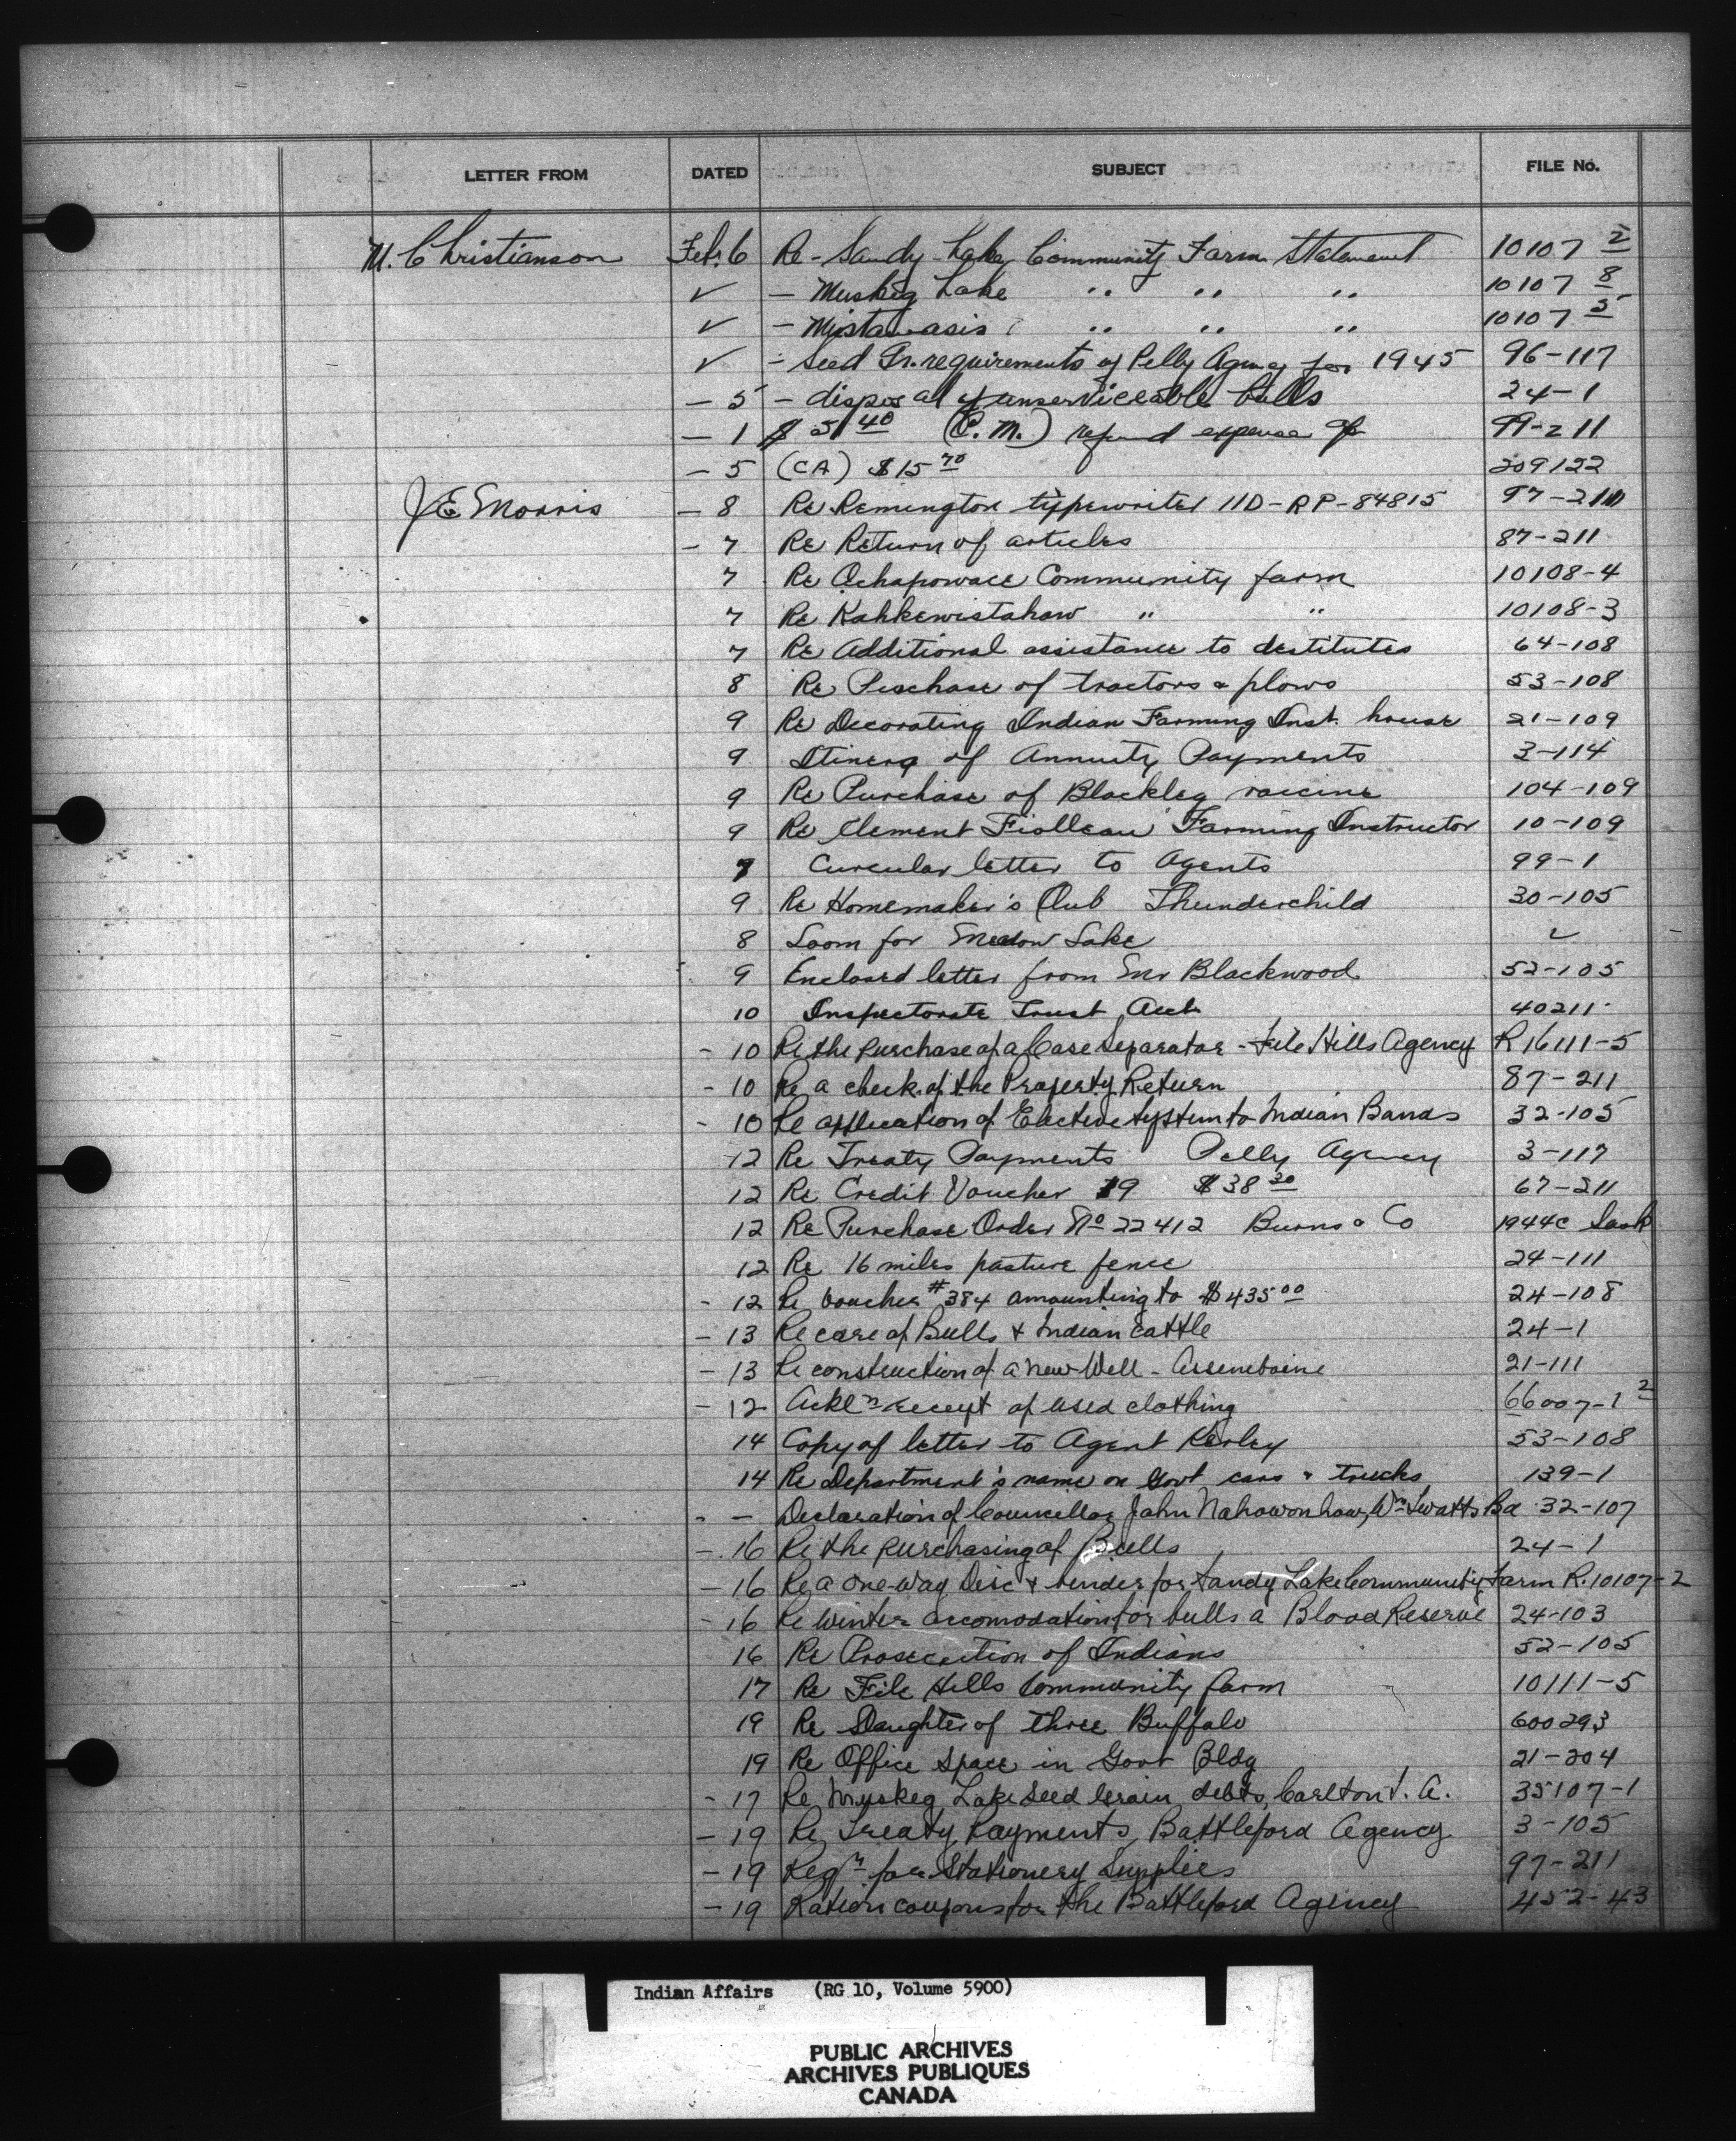 LETTER FROM DATED SUBJECT FILE No.
M. Christianson Feb. 6 Re - Sandy Lake Community Farm Statement 10107 2
✓ - Muskeg Lake " " " 10107 8
✓ - Mistawasis " " " 10107 5
✓ - Seed Gr. requirements of Pelly Agency for 1945 96-117
- 5 - disposal of unserviceable bulls 24-1
- 1 $ 51 40 (C.M.) refund expense 99-211
- 5 (CA) $15 70 209122
J E Morris - 8 Re Remington typewriter 11D-RP-84815 97-211
- 7 Re Return of articles 87-211
7 Re Ochapowace Community farm 10108-4
7 Re Kahkewistahaw " " 10108-3
7 Re Additional assistance to destitutes 64-108
8 Re Purchase of tractors & plows 53-108
9 Re Decorating Indian Farming Inst. house 21-109
9 Itinerary of Annuity Payments 3-114
9 Re Purchase of Blackleg vaccine 104-109
9 Re Clement Fiolleau Farming Instructor 10-109
9 Circular letter to Agents 99-1
9 Re Homemaker's Club Thunderchild 30-105
8 Loom for Meadow Lake ✓
9 Enclosed letter from Mr Blackwood 52-105
10 Inspectorate Trust Acct. 40211
- 10 Re the purchase of a Case Separator - File Hills Agency R16111-5
- 10 Re a check of the Property Return 87-211
- 10 Re application of Elective System to Indian Bands 32-105
12 Re Treaty Payments Pelly Agency 3-117
12 Re Credit Voucher 19 $38 30 67-211
12 Re Purchase Order No 22412 Burns & Co 1944C Sask
12 Re 16 miles pasture fence 24-111
- 12 Re Voucher #384 amounting to $435 00 24-108
- 13 Re care of Bulls & Indian Cattle 24-1
- 13 Re construction of a new Well - Assineboine 21-111
- 12 Ackl n receipt of used clothing 66007-1 2
14 Copy of letter to Agent Kerley 53-108
14 Re Department's name on Govt cars & trucks 139-1
- - Declaration of Councellor John Nahowonhow, Wm Twatts Bd 32-107
- 16 Re the purchasing of Bulls 24-1
- 16 Re a One-Way Disc & binder for Sandy Lake Community Farm R.10107-2
- 16 Re Winter accomodation for bulls a Blood Reserve 24-103
16 Re Prosecution of Indians 52-105
17 Re File Hills Community farm 10111-5
19 Re Slaughter of three Buffalo 600293
19 Re Office space in Govt Bldg 21-204
- 17 Re Muskeg Lake Seed Grain debts, Carlton I. A. 35107-1
- 19 Re Treaty Payments, Battleford Agency 3-105
- 19 Reqn for Stationery Supplies 97-211
- 19 Ration coupons for the Battleford Agency 452-43
Indian Affairs (RG 10, Volume 5900)
PUBLIC ARCHIVES
ARCHIVES PUBLIQUES
CANADA